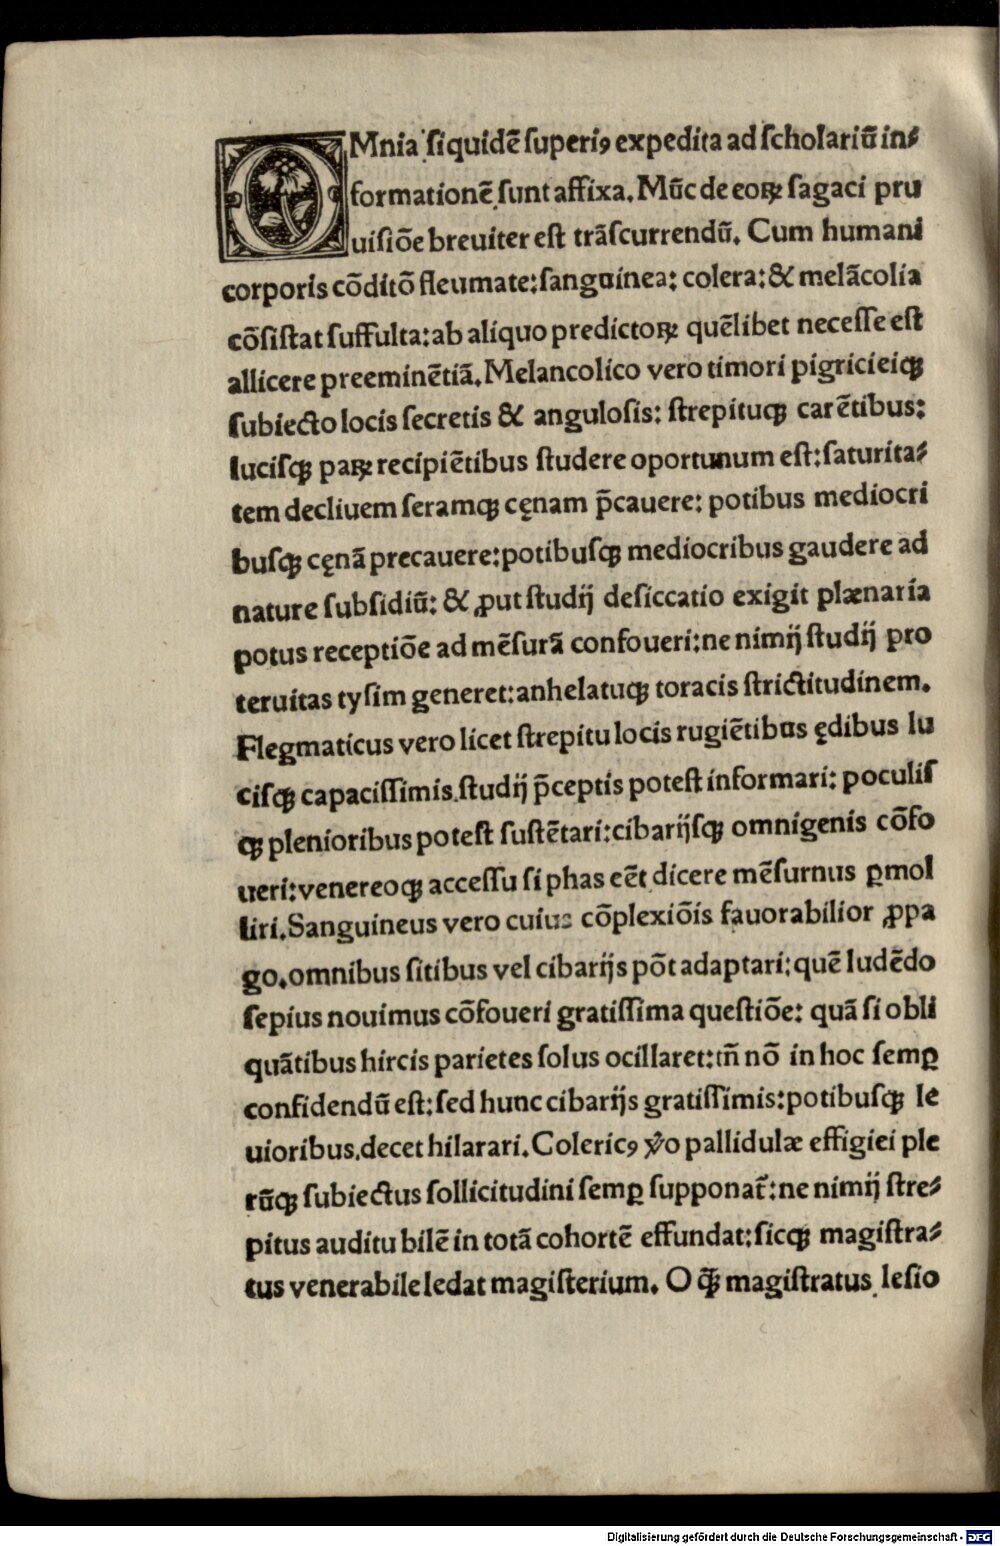 OMnia siquidē superiꝰ expedita ad scholariū in⸗
formationē sunt affixa. Mūc de eoꝝ sagaci pru
uisiōe breuiter est trāscurrendū. Cum humani
corporis cōditō fleumate: sanguinea: colera: & melācolia
cōsistat suffulta: ab aliquo predictoꝝ quēlibet necesse est
allicere preeminētiā. Melancolico vero timori pigricieiqꝫ
subiecto locis secretis & angulosis: strepituqꝫ carētibus:
lucisqꝫ paꝝ recipiētibus studere oportunum est: saturita⸗
tem decliuem seramqꝫ cęnam p̄cauere: potibus mediocri
busqꝫ cęnā precauere: potibusqꝫ mediocribus gaudere ad
nature subsidiū: & ꝓut studij desiccatio exigit plænaria
potus receptiōe ad mēsurā confoueri: ne nimij studij pro
teruitas tysim generet: anhelatuqꝫ toracis strictitudinem.
Flegmaticus vero licet strepitu locis rugiētibus ędibus lu
cisqꝫ capacissimis studij p̄ceptis potest informari: poculis
qꝫ plenioribus potest sustētari: cibarijsqꝫ omnigenis cōfo
ueri: venereoqꝫ accessu si phas eēt dicere mēsurnus ꝑmol
liri. Sanguineus vero cuius cōplexiōis fauorabilior ꝓpa
go. omnibus sitibus vel cibarijs pōt adaptari: quē ludēdo
sepius nouimus cōfoueri gratissima questiōe: quā si obli
quātibus hircis parietes solus ocillaret: tn̄ nō in hoc semꝑ
confidendū est: sed hunc cibarijs gratissimis: potibusqꝫ le
uioribus. decet hilarari. Colericꝰ v̊o pallidulæ effigiei ple
rūqꝫ subiectus sollicitudini semꝑ supponat᷑: ne nimij stre⸗
pitus auditu bilē in totā cohortē effundat: sicqꝫ magistra⸗
tus venerabile ledat magisterium. O qꝫ̄ magistratus lesio
Digitalisierung gefördert durch die Deutsche Forschungsgemeinschaft - DFG